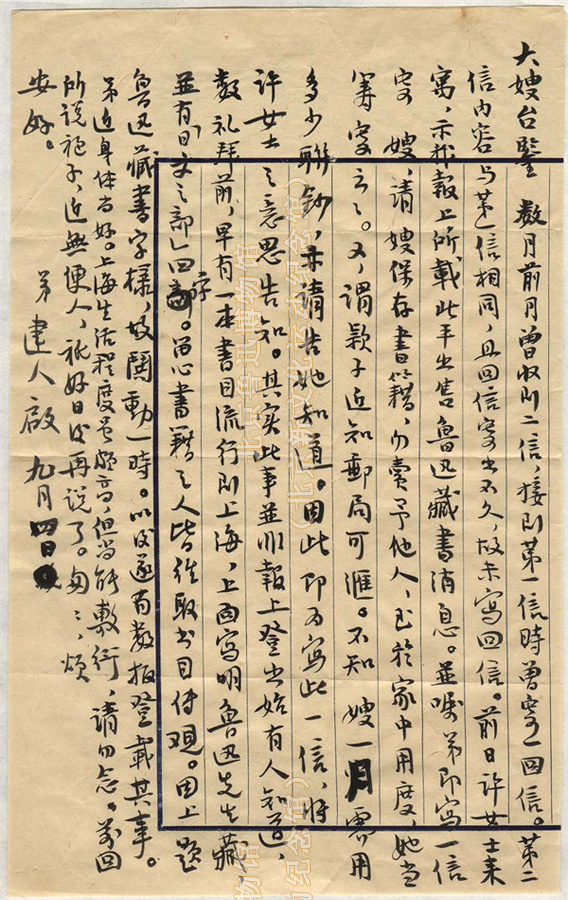 大嫂台鑒 数月前月曾收到二信，接到第一信時曾寄一回信。第二
信内容与第一信相同，且回信寄出不久，故未寫回信。前日許女士来
寓，示我報上所載此平出售魯迅藏書消息。並嘱弟即寫一信
寄嫂，請嫂保存書籍，勿賣予他人，至於家中用度，她当
籌寄云云。又，謂款子近知郵局可滙。不知嫂一月需用
多少聯鈔，亦請告她知道。因此即为寫此一信，將
許女士之意思告知。其实此事並非報上登出始有人知道，
数礼拜前，早有一本書目流行到上海，上面寫明魯迅先生藏
並有日文之部」四字。爱書籍之人皆往取書目待观。因上題
魯迅藏書字樣，故鬨動一時。以後遂有数报登載其事。
弟近身体尚好。上海生活程度虽頗高，但尚能敷衍，請勿念。前回
所说袍子，近無便人，祗好日後再説了。匆匆，頌
安好。
弟建人啟 九月四日
北京鲁迅博物馆
（北京新文化运动纪念馆）